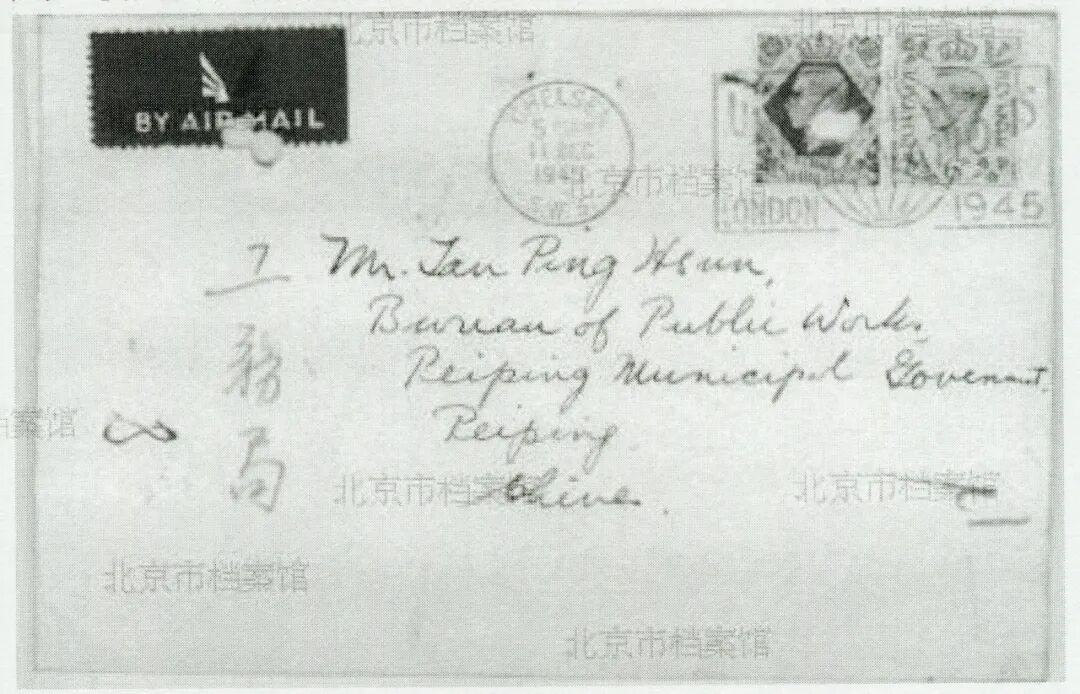 BY AIR MAIL
CHELSEA
11 DEC
S.W.3
LONDON
1945
Mr. Tan Ping Hsun,
Bureau of Public Works,
Peiping Municipal Govenment,
Peiping
China.
工
務
局
北京市档案馆
北京市档案馆
北京市档案馆
北京市档案馆
北京市档案馆
北京市档案馆
北京市档案馆